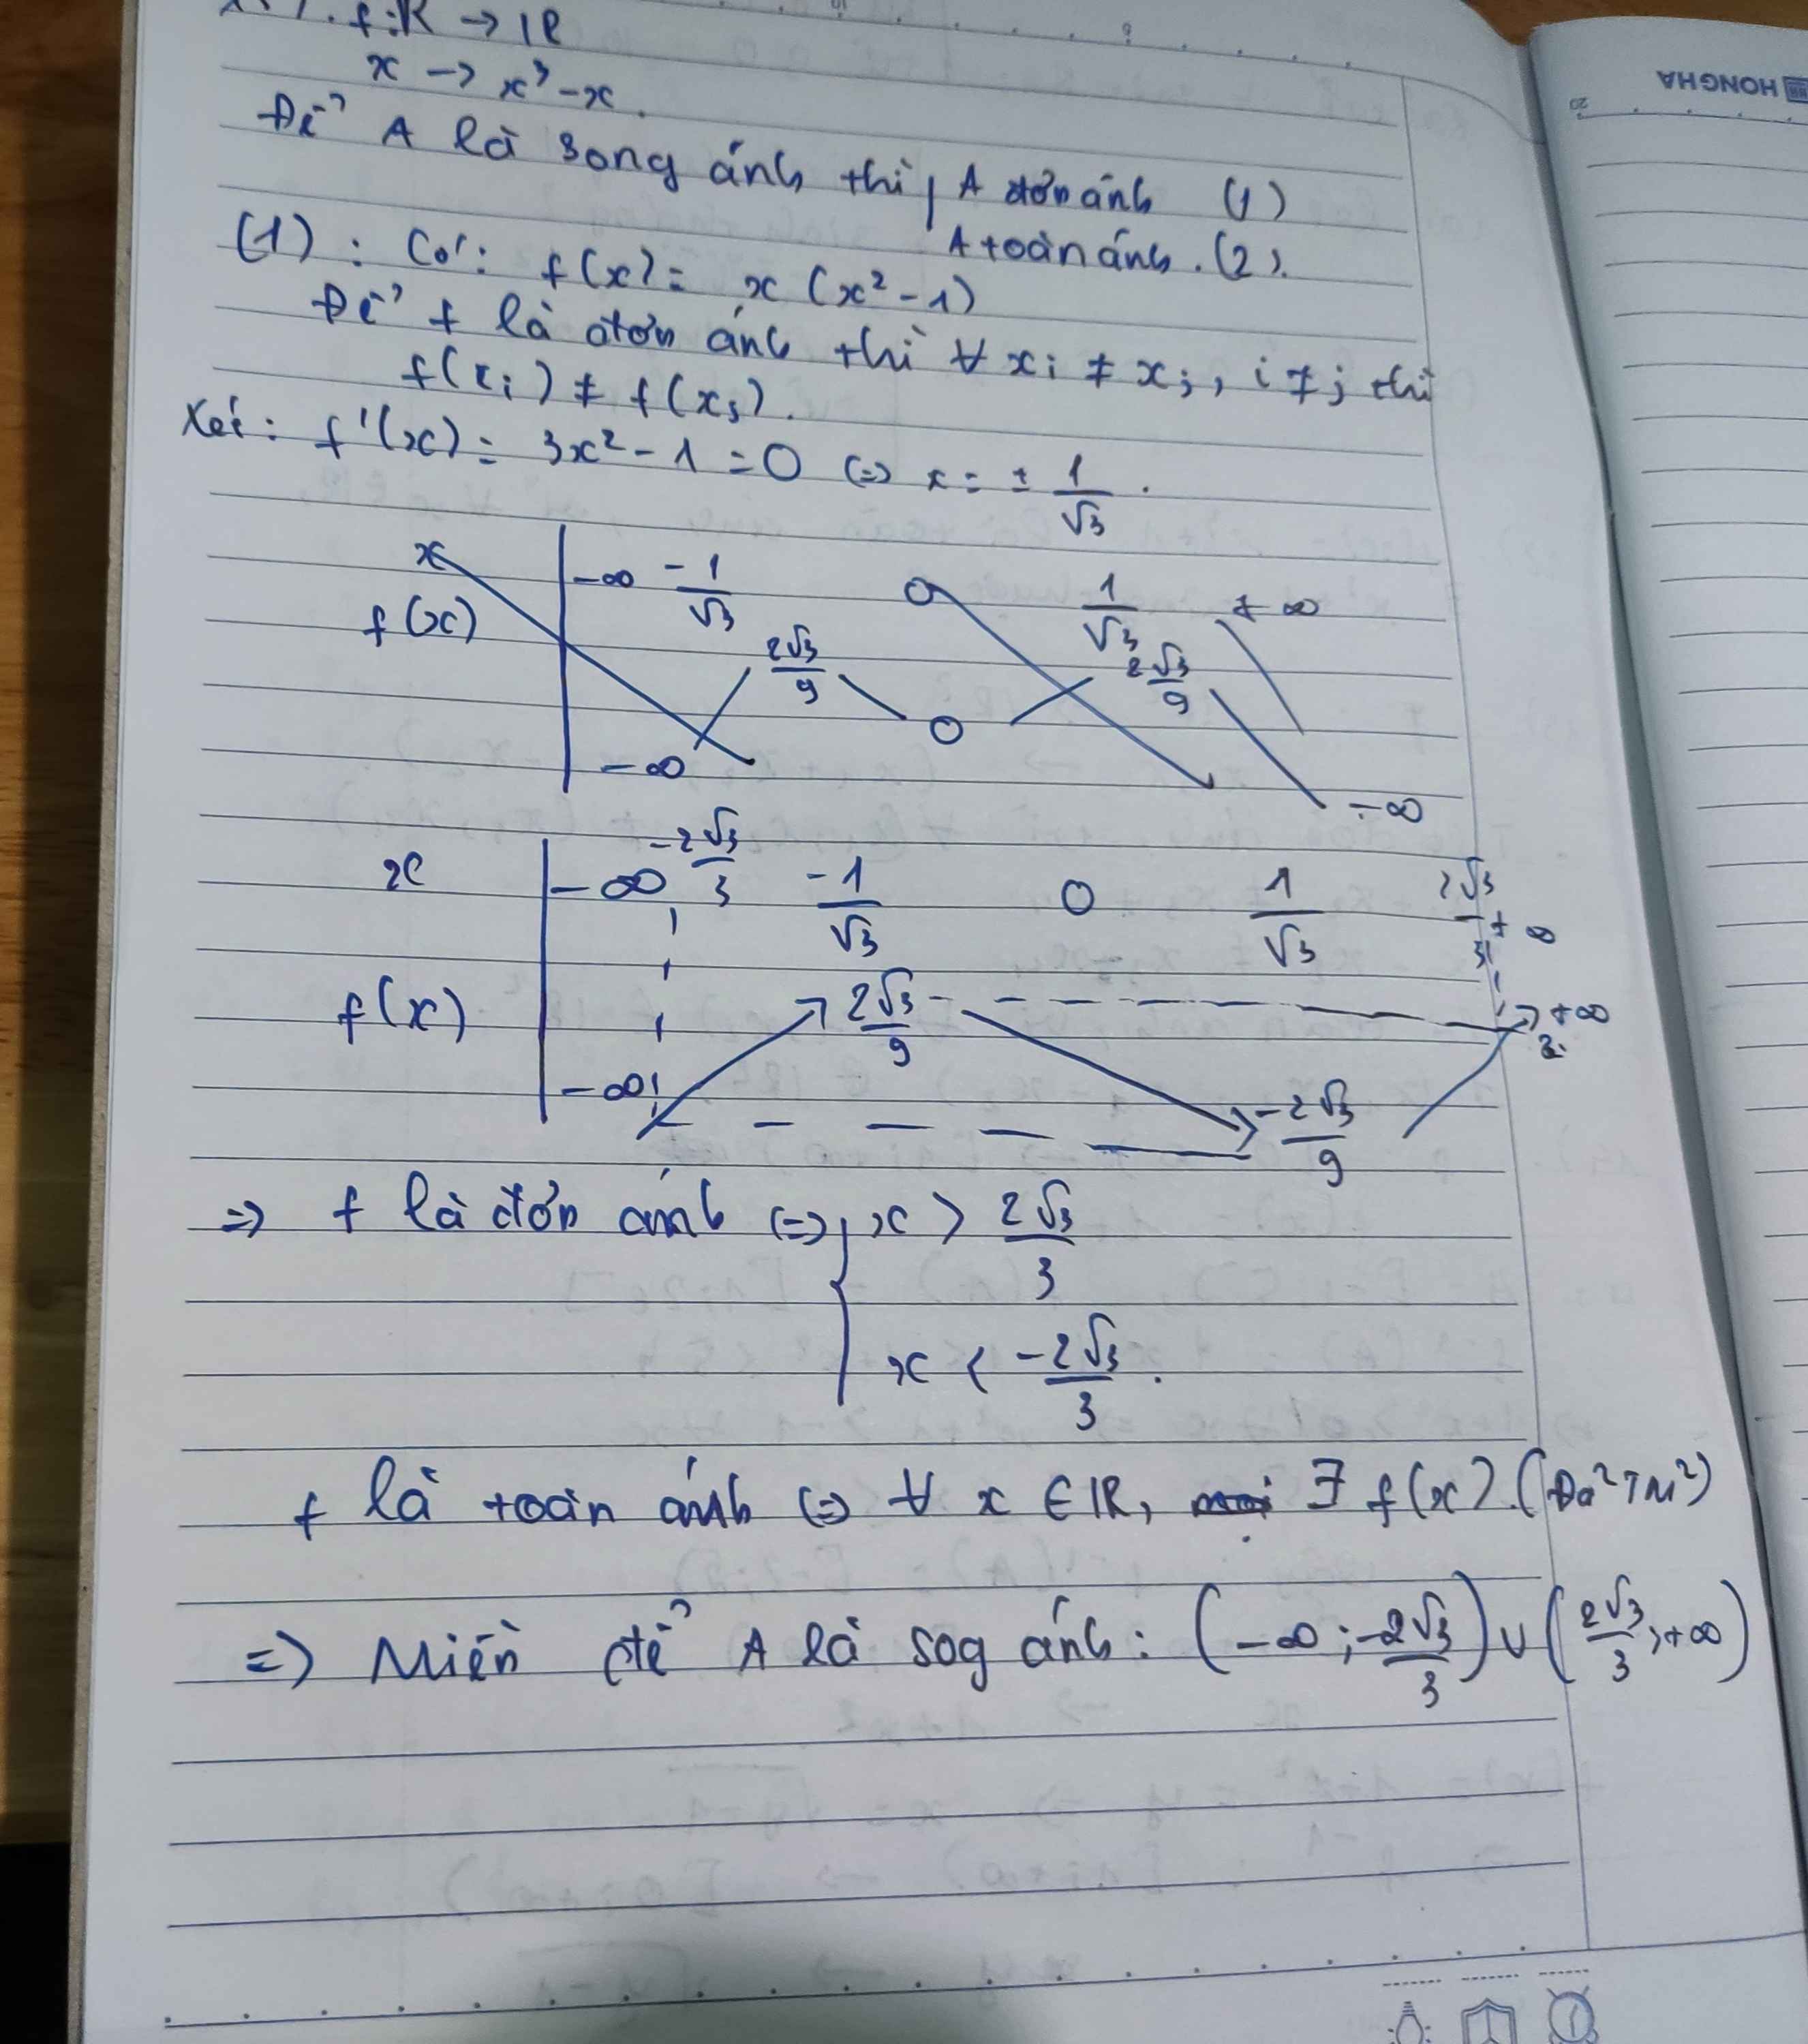 f: R → IR
x → x³ - x.
Để A là song ánh thì { A đơn ánh (1)
A toàn ánh. (2).
(1) : Có: f(x) = x (x² - 1)
Để f là đơn ánh thì ∀ xi ≠ xj, i ≠ j thì
f(xi) ≠ f(xj).
Xét: f'(x) = 3x² - 1 = 0 (=) x = ± 1/√3.
x | -∞ -1/√3 0 1/√3 +∞
f(x) | -∞ 2√3/9 0 2√3/9 -∞
x | -∞ -2√3/3 -1/√3 0 1/√3 2√3/3 +∞
f(x) | -∞ 2√3/9 -2√3/9 +∞
=> f là đơn ánh (=) { x > 2√3/3
x < -2√3/3.
f là toàn ánh (=) ∀ x ∈ IR, ∃ f(x). (Đã TM)
=> Miền để A là sog ánh: (-∞; -2√3/3) ∪ (2√3/3; +∞)
HONGHA
20